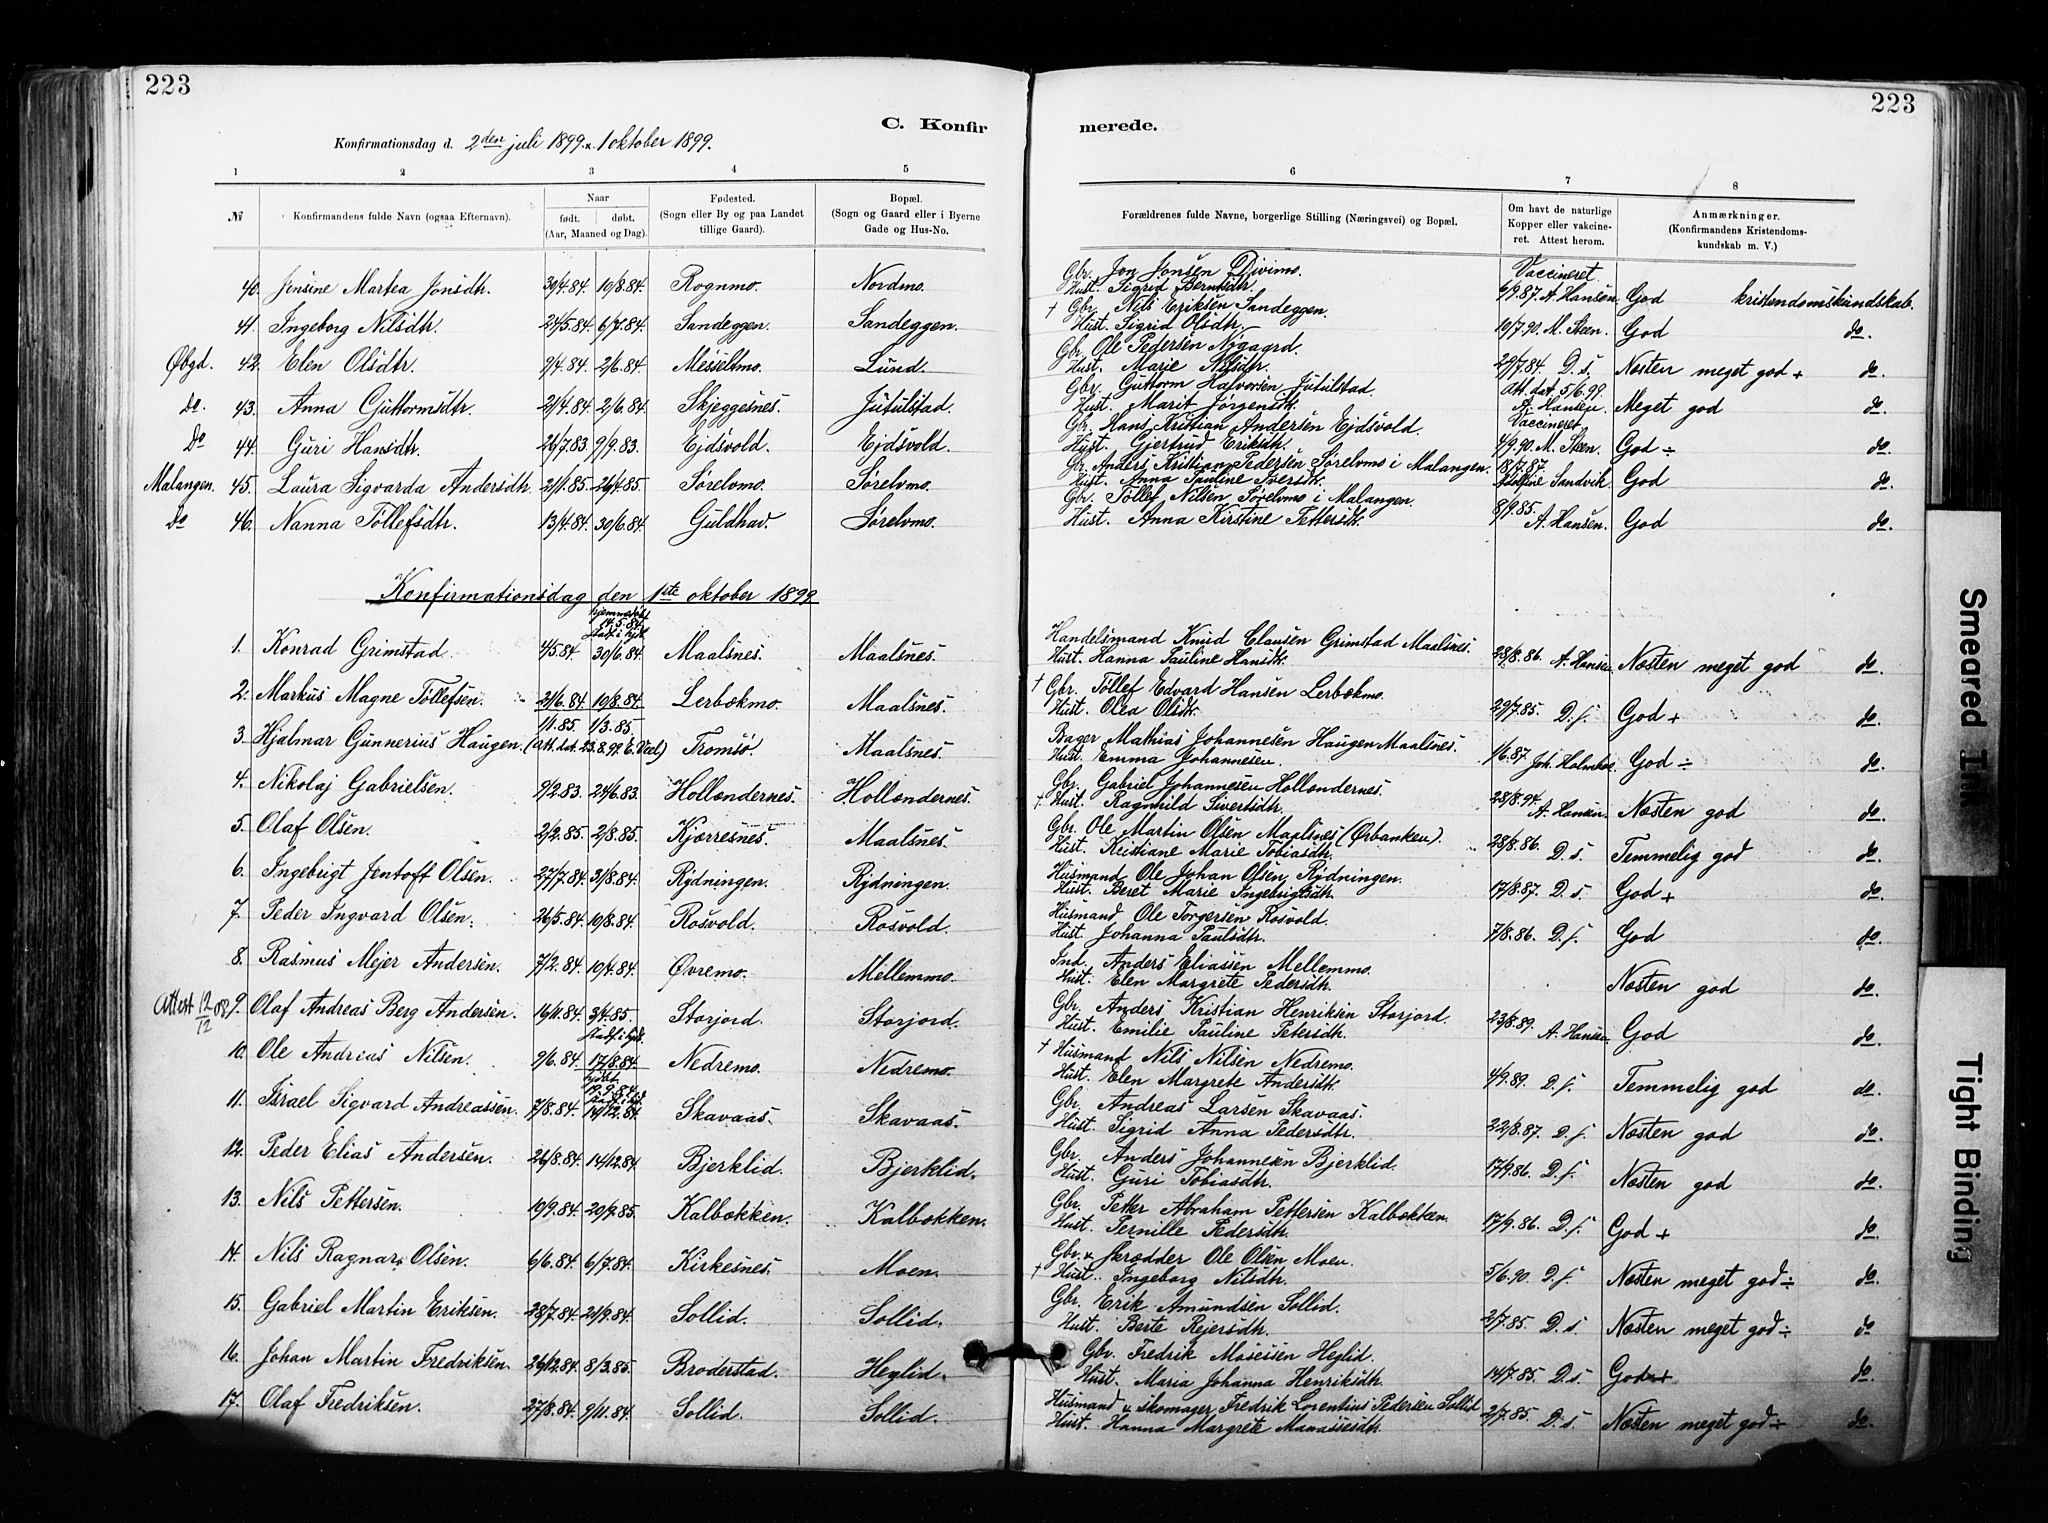 223
223
C. Konfir
merede.
Konfirmationsdag d. 2den juli 1899 x 1 oktober 1899.
1 2 3 4 5 6 7 8
№ Konfirmandens fulde Navn (ogsaa Efternavn). Naar født. døbt. (Aar, Maaned og Dag). Fødested. (Sogn eller By og paa Landet tillige Gaard). Bopæl. (Sogn og Gaard eller i Byerne Gade og Hus-No. Forældrenes fulde Navne, borgerlige Stilling (Næringsvei) og Bopæl. Om havt de naturlige Kopper eller vakcineret. Attest herom. Anmærkninger. (Konfirmandens Kristendomskundskab m. V.)
40. Jensine Martea Jonsdtr. 30/4.84. 10/8.84. Rognmo. Nordmo. Gbr. Jon Jonsen Divimo. Hust. Sigrid Berntsdtr. Vaccineret 6/9.87. A. Hansen. God kristendomskundskab.
41. Ingeborg Nilsdtr. 24/5.84. 6/7.84. Sandeggen. Sandeggen. † Gbr. Nils Eriksen Sandeggen. Hust. Sigrid Olsdtr. 10/7.90. M. Steen. God do.
Øbgd. 42. Elen Olsdtr. 9/4.84. 2/6.84. Messeltmo. Lund. Gbr. Ole Pedersen Nygaard. Hust. Marie Nilsdtr. 29/7.84. D. s. Næsten meget god + do.
do. 43. Anna Guttormsdtr. 21/4.84. 2/6.84. Skjeggesnes. Jutulstad. Gbr. Guttorm Halvorsen Jutulstad. Hust. Marit Jørgensdtr. Att. dat. 5/6.99. A. Hansen. Meget god do.
do 44. Guri Hansdtr. 26/7.83. 9/9.83. Ejdsvold. Ejdsvold. Gbr. Hans Kristian Andersen Ejdsvold. Hust. Gjertrud Eriksdtr. Vaccineret 4/9.90. M. Steen. God ÷ do.
Malangen. 45. Laura Sigvarda Andersdtr. 21/1.85. 26/4.85. Sørelvmo. Sørelvmo. Gbr. Anders Kristian Pedersen Sørelvmo i Malangen. Hust. Anna Pauline Iversdtr. 18/7.87. Adolfine Sandvik. God do.
do 46. Nanna Tollefsdtr. 13/4.84. 30/6.84. Guldhav. Sørelvmo. Gbr. Tollef Nilsen Sørelvmo i Malangen. Hust. Anna Kirstine Pettersdtr. 8/9.85. A. Hansen. God do.
Konfirmationsdag den 1ste oktober 1899
1. Konrad Grimstad. 4/5.84. hjemmedøbt 14.5.84 stadf. i kirk. 30/6.84. Maalsnes. Maalsnes. Handelsmand Knud Clausen Grimstad Maalsnes. Hust. Hanna Pauline Hansdtr. 28/8.86. A. Hansen. Næsten meget god do.
2. Markus Magne Tollefsen. 21/6.84. 10/8.84. Lerbækmo. Maalsnes. † Gbr. Tollef Edvard Hansen Lerbækmo. Hust. Olea Olsdtr. 29/7.85. D. s. God + do.
3. Hjalmar Gunnerius Haugen. 1/1.85. 1/3.85. (att. dat. 23.8.99 C. Veel) Tromsø. Maalsnes. Bager Mathias Johannesen Haugen Maalsnes. Hust. Emma Johannesen. 1/6.87. Joh. Holmboe. God ÷ do.
4. Nikolaj Gabrielsen. 9/2.83. 24/6.83. Hollendernes. Hollendernes. Gbr. Gabriel Johannesen Hollendernes. † Hust. Ragnhild Sivertsdtr. 28/8.94. A. Hansen. Næsten god do.
5. Olaf Olsen. 2/2.85. 2/8.85. Kjærresnes. Maalsnes. Gbr. Ole Martin Olsen Maalsnes (Ørbanken). Hust. Kristiane Marie Tobiasdtr. 28/8.86. D. s. Temmelig god do.
6. Ingebrigt Jentoft Olsen. 27/7.84. 31/8.84. Rydningen. Rydningen. Husmand Ole Johan Olsen Rydningen. Hust. Beret Marie Ingebrigtsdtr. 17/8.87. D. s. God + do.
7. Peder Ingvard Olsen. 26/5.84. 10/8.84. Rosvold. Rosvold. Husmand Ole Torgersen Rosvold. Hust. Johanna Paulsdtr. 7/8.86. D. s. God do.
8. Rasmus Mejer Andersen. 7/2.84. 10/4.84. Øvremo. Mellemmo. Ind. Anders Eliassen Mellemmo. Hust. Elen Margrete Pedersdtr. Næsten god do.
Attest 12/12 08 9. Olaf Andreas Berg Andersen. 16/11.84. 3/4.85. stadf. i kirk. Storjord. Storjord. Gbr. Anders Kristian Henriksen Storjord. Hust. Emilie Pauline Petersdtr. 23/8.89. A. Hansen. God do.
10. Ole Andreas Nilsen. 9/6.84. 17/8.84. Nedremo. Nedremo. † Husmand Nils Nilsen Nedremo. Hust. Elen Margrete Andersdtr. 4/9.89. D. s. Temmelig god do.
11. Israel Sigvard Andreassen. 7/8.84. hjdøbt 19.9.84. stadf. i kirk. 14/12.84 Skavaas. Skavaas. Gbr. Andreas Larsen Skavaas. Hust. Sigrid Anna Pedersdtr. 22/8.87. D. s. Næsten god do.
12. Peder Elias Andersen. 26/8.84. 14/12.84 Bjerklid. Bjerklid. Gbr. Anders Johannesen Bjerklid. Hust. Guri Tobiasdtr. 17/9.86. D. s. Næsten god do.
13. Nils Pettersen. 19/9.84. 20/9.85. Kalbækken. Kalbækken. Gbr. Petter Abraham Pettersen Kalbækken. Hust. Pernille Pedersdtr. 17/9.86. D. s. God + do.
14. Nils Ragnar Olsen. 6/6.84. 6/7.84. Kirkesnes. Moen. Gbr. x skrædder Ole Olsen Moen. † Hust. Ingeborg Nilsdtr. 5/6.90. D. s. Næsten meget god ÷ do.
15. Gabriel Martin Eriksen. 28/7.84. 21/9.84. Sollid. Sollid. Gbr. Erik Amundsen Sollid. Hust. Berte Rejersdtr. 2/7.85. D. s. Næsten meget god ÷ do
16. Johan Martin Fredriksen. 26/12.84. 8/3.85. Broderstad. Heglid. Gbr. Fredrik Mosesen Heglid. Hust. Maria Johanna Henriksdtr. 14/7.85. D. s. God + do.
17. Olaf Fredriksen. 27/8.84. 9/11.84. Sollid. Sollid. Husmand x skomager Fredrik Lorentius Pedersen Sollid Hust. Hanna Margrete Manassesdtr. 2/7.85. D. s. Næsten meget god ÷ do.
Smeared Ink
Tight Binding